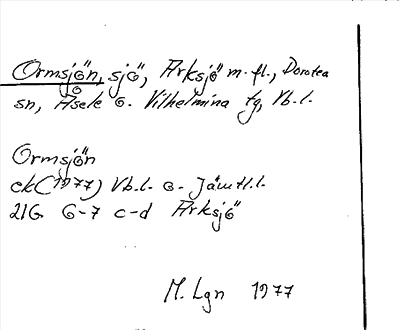 Ormsjön, sjö, Arksjö m.fl., Dorotea
sn, Åsele o. Vilhelmina tg, Vb.l.
Ormsjön
ek (1977) Vb.l. o. Jämtl.l.
21G 6-7 c-d Arksjö
M. Lgn 1977